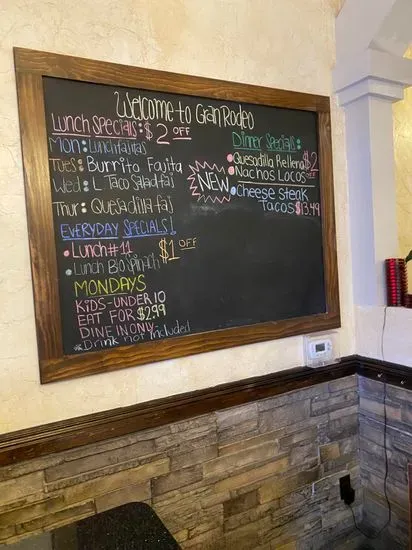 Welcome to Gran Rodeo
Lunch Specials: $2 OFF
Mon: Lunchfajitas
Tues: Burrito Fajita
Wed: L Taco Salad Fajitas
Thur: Quesadilla fajs
EVERYDAY SPECIALS!
• Lunch #11
• Lunch Big Spinach
$1 OFF
MONDAYS
KIDS-UNDER 10
EAT FOR $2.99
DINE IN ONLY
*Drink not included
Dinner Specials:
• Quesadilla Rellena
• Nachos Locos
$2 OFF
NEW
• Cheese steak
Tacos $13.49